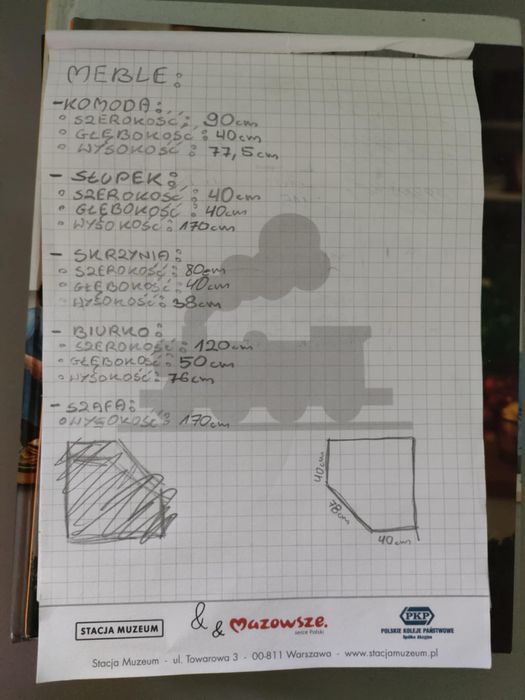 MEBLE:
-KOMODA:
° SZEROKOŚĆ: 90cm
° GŁĘBOKOŚĆ: 40cm
° WYSOKOŚĆ: 77,5cm
- SŁUPEK:
° SZEROKOŚĆ: 40cm
° GŁĘBOKOŚĆ: 40cm
° WYSOKOŚĆ: 170cm
- SKRZYNIA:
° SZEROKOŚĆ: 80cm
° GŁĘBOKOŚĆ: 40cm
° WYSOKOŚĆ: 38cm
- BIURKO:
° SZEROKOŚĆ: 120cm
° GŁĘBOKOŚĆ: 50cm
° WYSOKOŚĆ: 76cm
- SZAFA:
° WYSOKOŚĆ: 170cm
40cm
78cm
40cm
STACJA MUZEUM
& &
Mazowsze.
serce Polski
PKP
POLSKIE KOLEJE PAŃSTWOWE
Spółka Akcyjna
Stacja Muzeum - ul. Towarowa 3 - 00-811 Warszawa - www.stacjamuzeum.pl